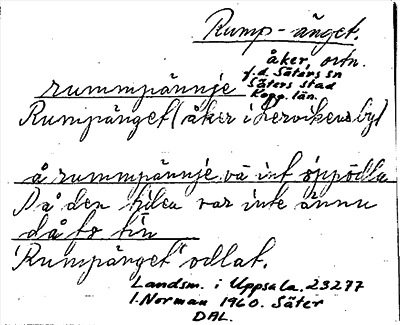 Rump-änget.
åker, ortn.
f.d. Säters sn
Säters stad
Kopp. län.
rummpännje
Rumpänget (åker i Lervikens by)
å rummpännje va int öppödla
På den tiden var inte ännu
då to tin
"Rumpänget" odlat.
Landsm. i Uppsala. 23277
I. Norman 1960. Säter
DAL.